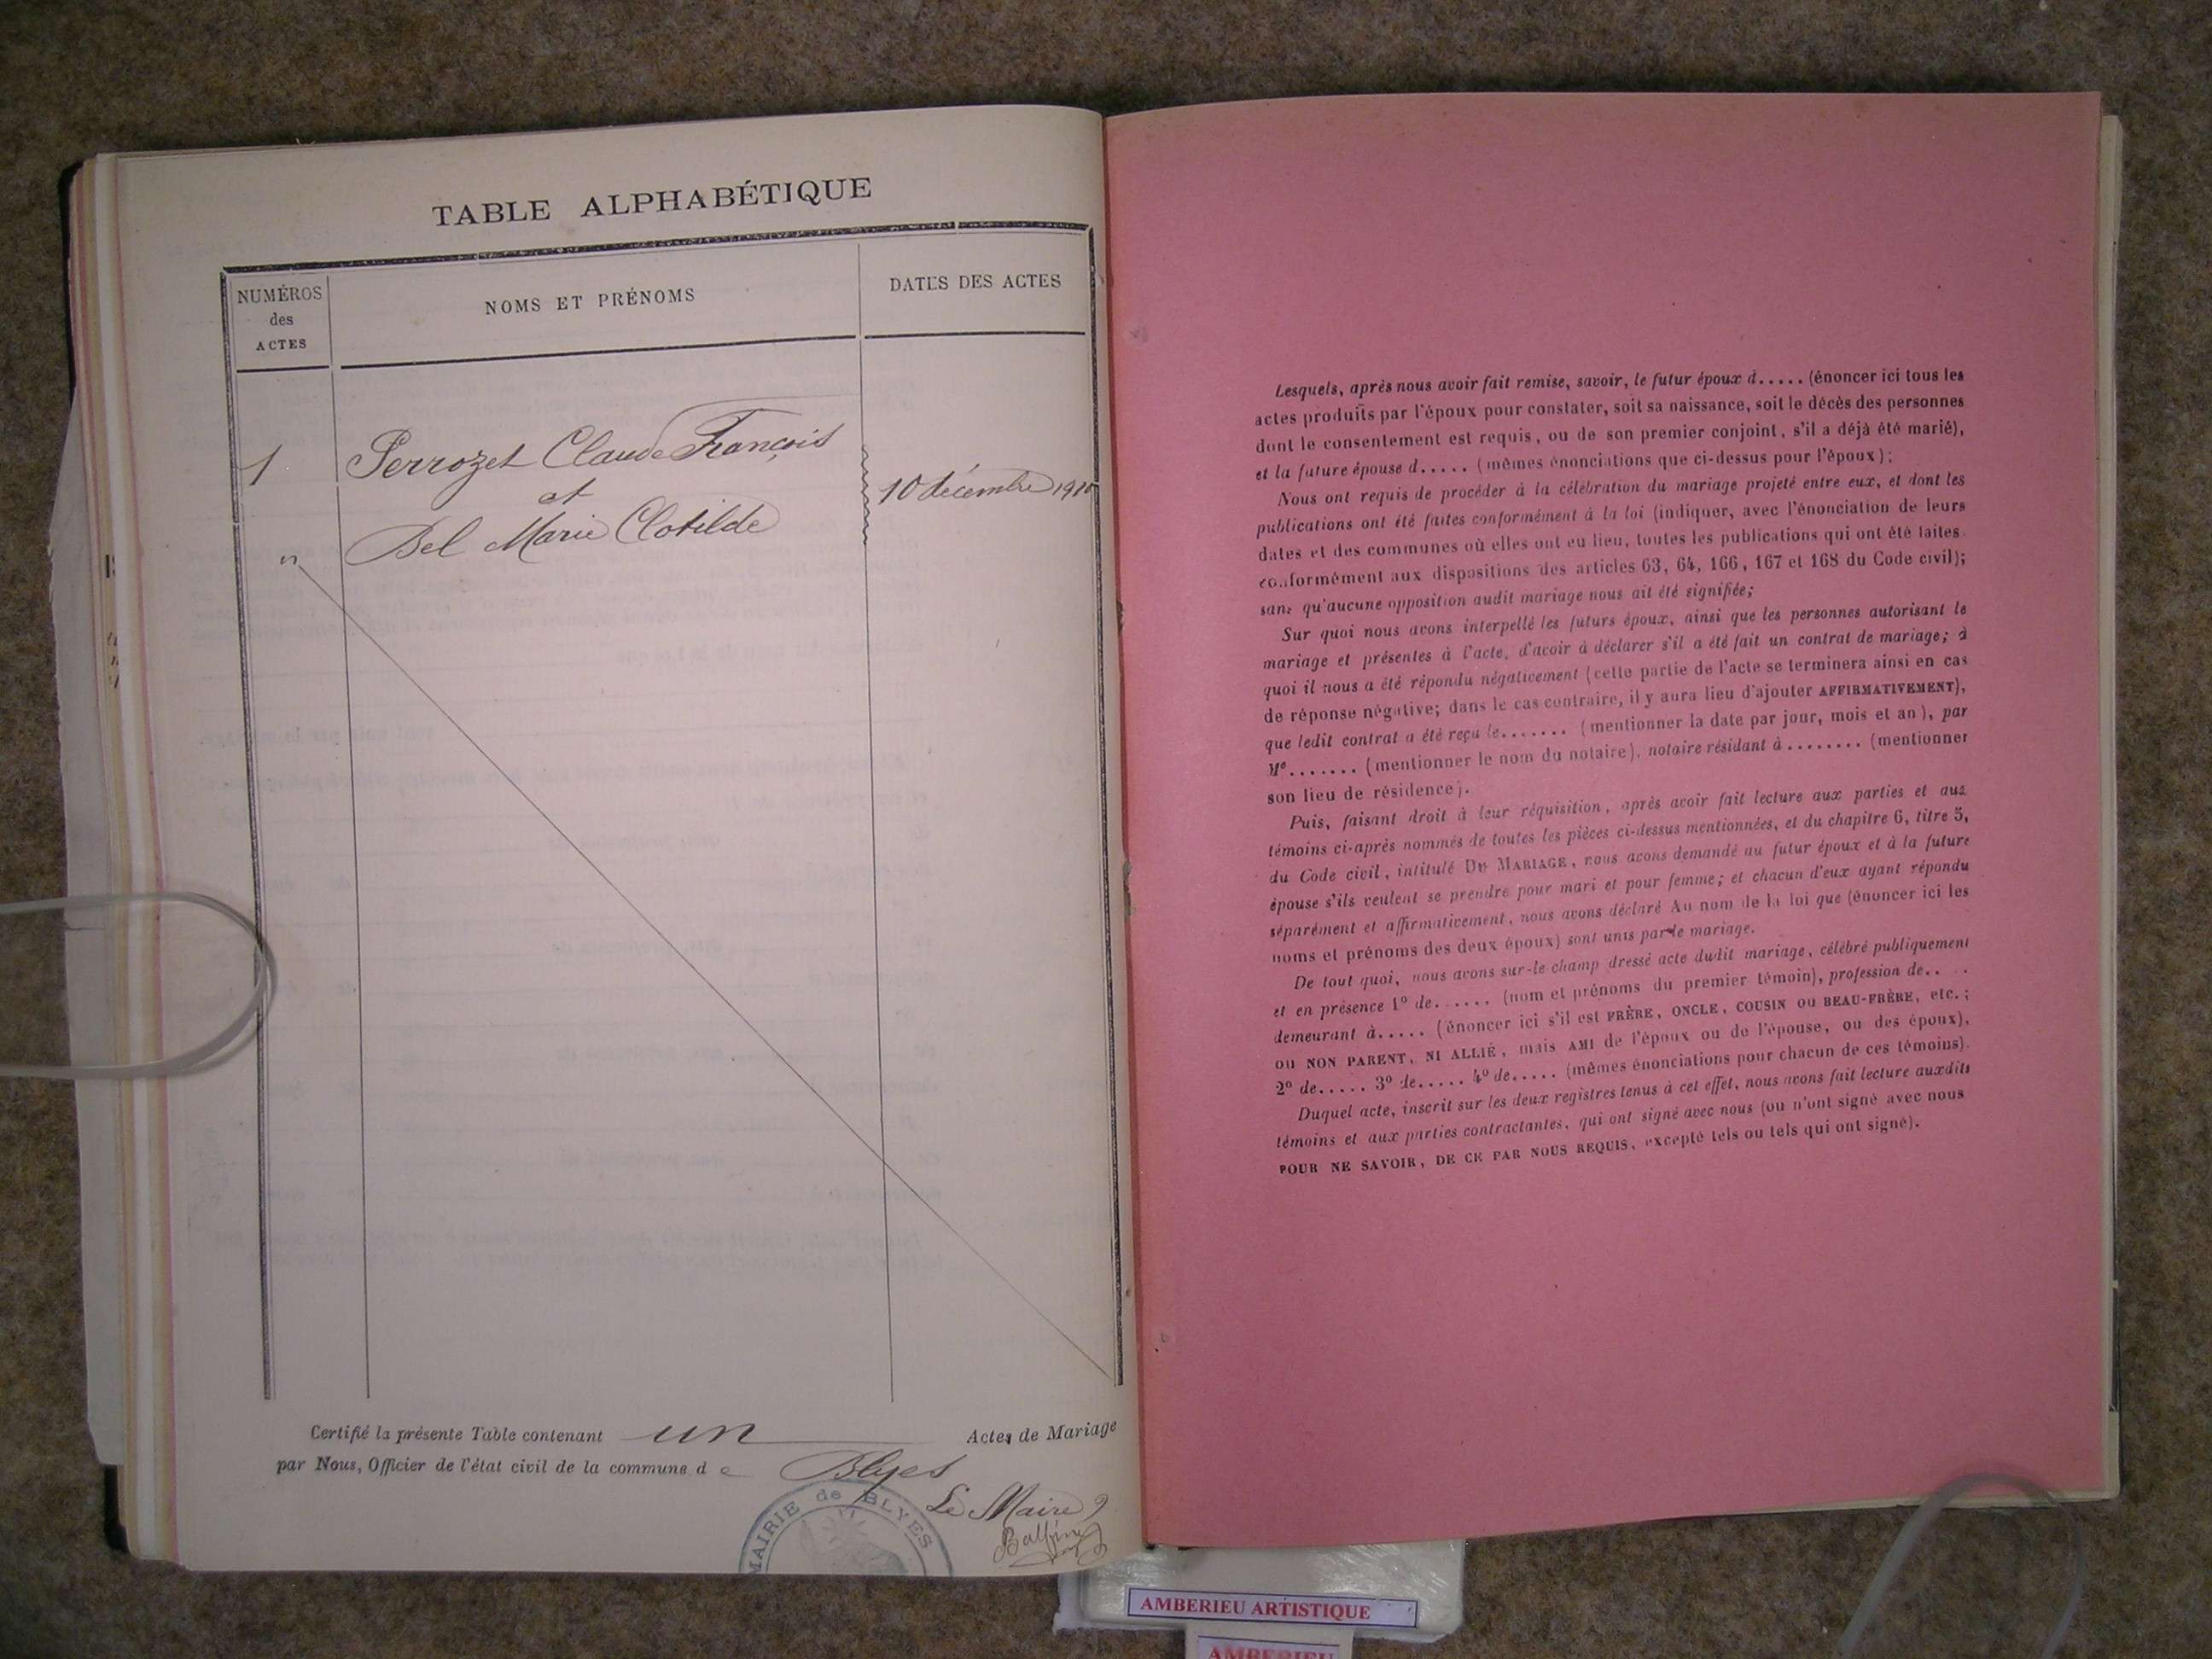 TABLE ALPHABÉTIQUE
NUMÉROS
des
ACTES
NOMS ET PRÉNOMS
DATES DES ACTES
1
Perrozet Claude François
et
10 décembre 1910
Bel Marie Clotilde
"
Certifié la présente Table contenant un Actes de Mariage
par Nous, Officier de l'état civil de la commune d e Blyes
Le Maire
MAIRIE de BLYES
Lesquels, après nous avoir fait remise, savoir, le futur époux d..... (énoncer ici tous les
actes produits par l'époux pour constater, soit sa naissance, soit le décès des personnes
dont le consentement est requis, ou de son premier conjoint, s'il a déjà été marié),
et la future épouse d..... (mêmes énonciations que ci-dessus pour l'époux);
Nous ont requis de procéder à la célébration du mariage projeté entre eux, et dont les
publications ont été faites conformément à la loi (indiquer, avec l'énonciation de leurs
dates et des communes où elles ont eu lieu, toutes les publications qui ont été faites
conformément aux dispositions des articles 63, 64, 166, 167 et 168 du Code civil);
sans qu'aucune opposition audit mariage nous ait été signifiée;
Sur quoi nous avons interpellé les futurs époux, ainsi que les personnes autorisant le
mariage et présentes à l'acte, d'avoir à déclarer s'il a été fait un contrat de mariage; à
quoi il nous a été répondu négativement (cette partie de l'acte se terminera ainsi en cas
de réponse négative; dans le cas contraire, il y aura lieu d'ajouter AFFIRMATIVEMENT),
que ledit contrat a été reçu le....... (mentionner la date par jour, mois et an), par
Me....... (mentionner le nom du notaire), notaire résidant à ........ (mentionner
son lieu de résidence).
Puis, faisant droit à leur réquisition, après avoir fait lecture aux parties et aux
témoins ci-après nommés de toutes les pièces ci-dessus mentionnées, et du chapitre 6, titre 5,
du Code civil, intitulé DU MARIAGE, nous avons demandé au futur époux et à la future
épouse s'ils veulent se prendre pour mari et pour femme; et chacun d'eux ayant répondu
séparément et affirmativement, nous avons déclaré Au nom de la loi que (énoncer ici les
noms et prénoms des deux époux) sont unis par le mariage.
De tout quoi, nous avons sur-le-champ dressé acte dudit mariage, célébré publiquement
et en présence 1º de...... (nom et prénoms du premier témoin), profession de.. . .
demeurant à..... (énoncer ici s'il est FRÈRE, ONCLE, COUSIN OU BEAU-FRÈRE, etc.;
OU NON PARENT, NI ALLIÉ, mais AMI de l'époux ou de l'épouse, ou des époux),
2º de..... 3º de..... 4º de..... (mêmes énonciations pour chacun de ces témoins).
Duquel acte, inscrit sur les deux registres tenus à cet effet, nous avons fait lecture auxdits
témoins et aux parties contractantes, qui ont signé avec nous (ou n'ont signé avec nous
POUR NE SAVOIR, DE CE PAR NOUS REQUIS, excepté tels ou tels qui ont signé).
AMBERIEU ARTISTIQUE
AMBERIEU